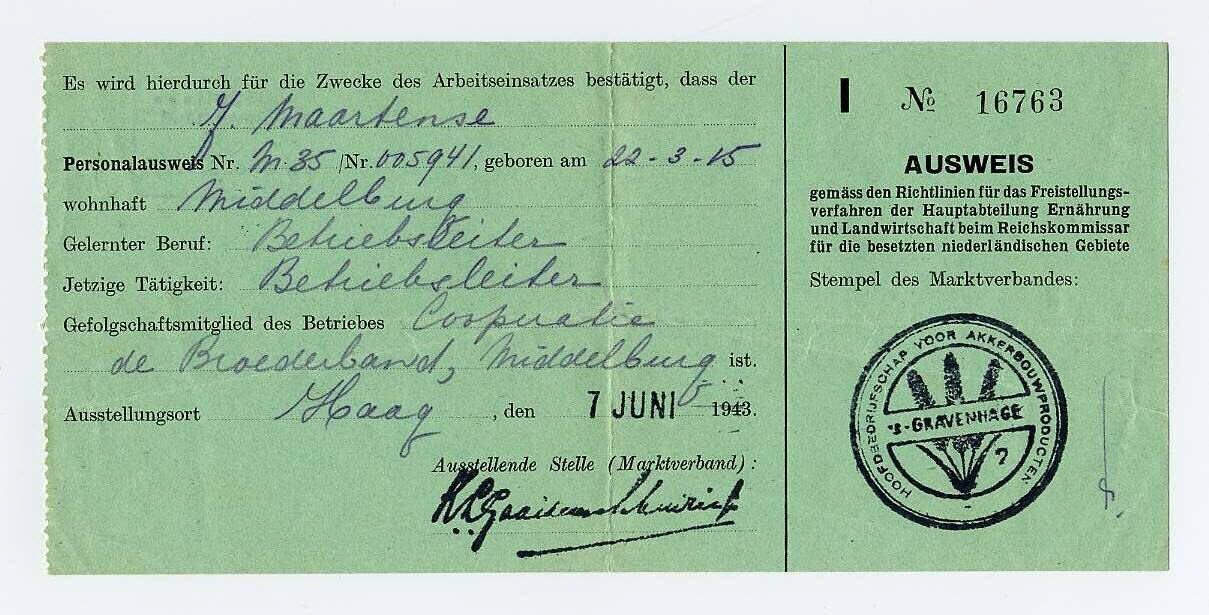 Es wird hierdurch für die Zwecke des Arbeitseinsatzes bestätigt, dass der
J. Maartense
Personalausweis Nr. M.35 /Nr. 005941, geboren am 22-3-15
wohnhaft Middelburg
Gelernter Beruf: Betriebsleiter
Jetzige Tätigkeit: Betriebsleiter
Gefolgschaftsmitglied des Betriebes Cooperatie
de Broederband, Middelburg ist.
Ausstellungsort Haag, den 7 JUNI 1943.
Ausstellende Stelle (Marktverband):
I № 16763
AUSWEIS
gemäss den Richtlinien für das Freistellungs-
verfahren der Hauptabteilung Ernährung
und Landwirtschaft beim Reichskommissar
für die besetzten niederländischen Gebiete
Stempel des Marktverbandes:
HOOFDBEDRIJFSCHAP VOOR AKKERBOUWPRODUCTEN
'S-GRAVENHAGE
7